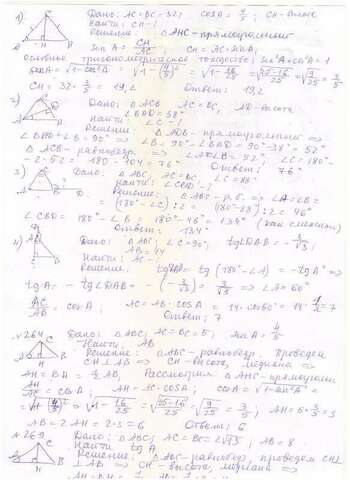 1) Дано: AC = BC = 32; cosA = 4/5; CH - высота
Найти: CH - ?
Решение: △ AHC - прямоугольный
sin A = CH/AC; CH = AC·sinA;
основное тригонометрическое тождество: sin²A + cos²A = 1
sinA = √1-cos²A = √1-(4/5)² = √1-16/25 = √25-16/25 = √9/25 = 3/5
CH = 32 · 3/5 = 19,2 Ответ: 19,2
2) Дано: △ ACB AC = BC, AD - высота
∠BAD = 38°
Найти: ∠C - ?
Решение: △ ADB - прямоугольный ⇒
∠BAD + ∠B = 90° ⇒ ∠B = 90° - ∠BAD = 90° - 38° = 52°
△ ACB - равнобедр. ⇒ ∠A = ∠B = 52°, ∠C = 180° -
- 2·52 = 180 - 104 = 76° Ответ: 76°
3) Дано: △ ABC, AC = BC, ∠C = 88°
Найти: ∠CBD - ?
Решение: △ ABC - р.б. ⇒ ∠A = ∠B =
= (180° - ∠C) : 2 = (180° - 88°) : 2 = 46°
∠CBD = 180° - ∠B = 180° - 46° = 134° (как смежные)
Ответ: 134°
4) Дано: △ ABC, ∠C = 90°, tg∠DAB = - 3/√3;
AB = 14
Найти: AC - ?
Решение: tg∠DAB = tg (180° - ∠A) = - tgA ⇒
tgA = - tg∠DAB = - (- 3/√3) = 3/√3 ⇒ ∠A = 60°
AC/AB = cosA, AC = AB·cosA = 14·cos60° = 14·1/2 = 7
Ответ: 7
№264 Дано: △ ABC; AC = BC = 5; sin A = 4/5
Найти: AB
Решение: △ ABC - равнобедр. Проведем
CH ⊥ AB ⇒ CH - высота, медиана ⇒
AH = BH = 1/2 AB. Рассмотрим △ AHC - прямоугольн.
AH/AC = cosA; AH = AC·cosA; cosA = √1-sin²A =
= √1-(4/5)² = √1-16/25 = √25-16/25 = √9/25 = 3/5; AH = 5·3/5 = 3
AB = 2AH = 2·3 = 6 Ответ: 6
№269 Дано: △ ABC; AC = BC = 2√13; AB = 8
Найти tg A
Решение: △ ABC - равнобедр, проведем CH ⊥
⊥ AB ⇒ CH - высота, медиана ⇒